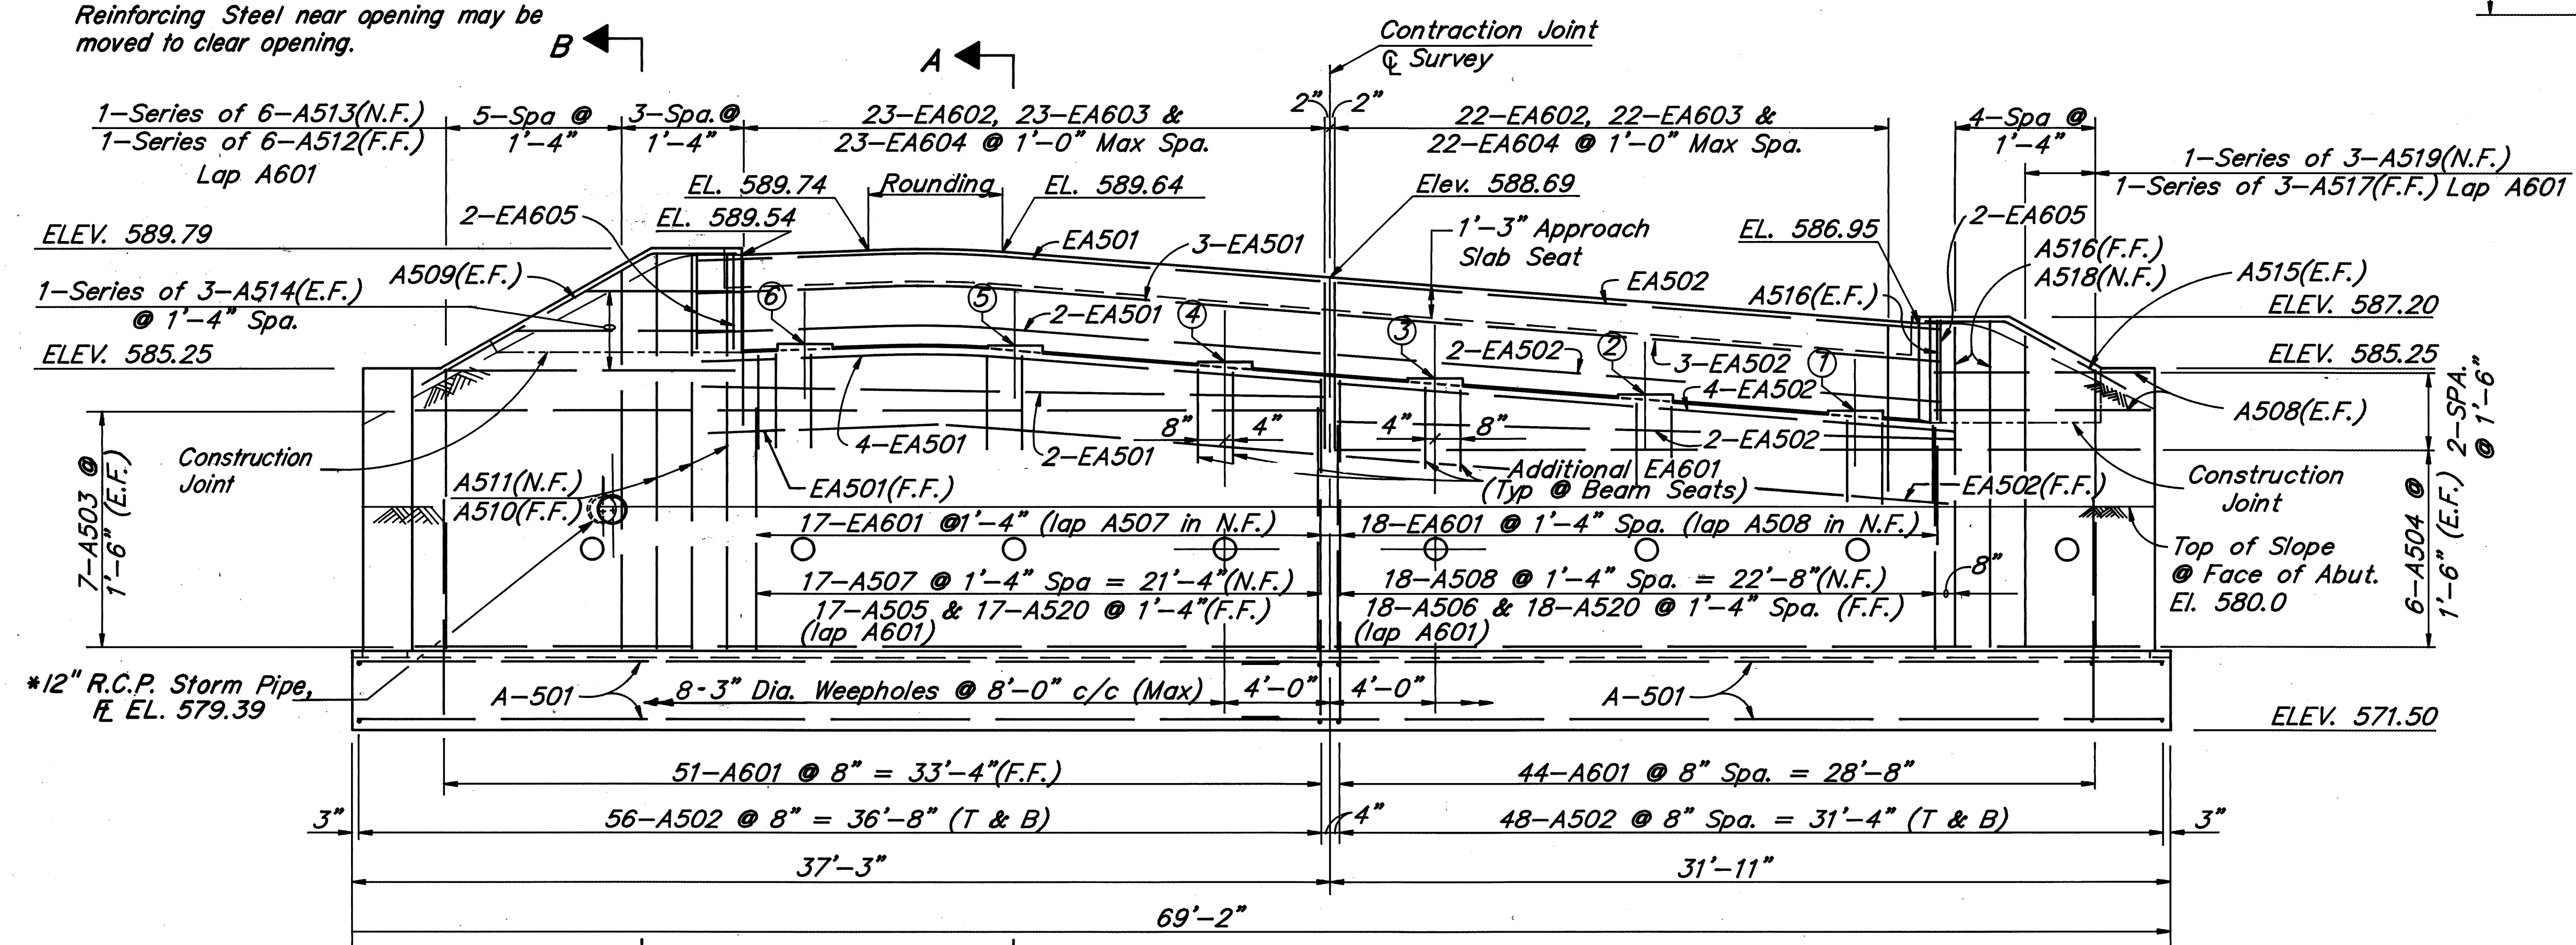 Reinforcing Steel near opening may be
moved to clear opening.
B
A
Contraction Joint
℄ Survey
1-Series of 6-A513(N.F.)
1-Series of 6-A512(F.F.)
Lap A601
5-Spa @
1'-4"
3-Spa.@
1'-4"
23-EA602, 23-EA603 &
23-EA604 @ 1'-0" Max Spa.
2"
2"
22-EA602, 22-EA603 &
22-EA604 @ 1'-0" Max Spa.
4-Spa @
1'-4"
1-Series of 3-A519(N.F.)
1-Series of 3-A517(F.F.) Lap A601
EL. 589.74
Rounding
EL. 589.64
Elev. 588.69
2-EA605
EL. 589.54
ELEV. 589.79
EA501
3-EA501
1'-3" Approach
Slab Seat
EL. 586.95
2-EA605
A516(F.F.)
A518(N.F.)
A509(E.F.)
1-Series of 3-A514(E.F.)
@ 1'-4" Spa.
EA502
A516(E.F.)
A515(E.F.)
ELEV. 587.20
6
5
4
3
2
1
2-EA501
2-EA502
3-EA502
4-EA502
ELEV. 585.25
ELEV. 585.25
2-SPA.
@ 1'-6"
A508(E.F.)
8"
4"
4"
8"
4-EA501
2-EA501
2-EA502
Construction
Joint
A511(N.F.)
A510(F.F.)
EA501(F.F.)
Additional EA601
(Typ @ Beam Seats)
EA502(F.F.)
Construction
Joint
7-A503 @
1'-6" (E.F.)
6-A504 @
1'-6" (E.F.)
17-EA601 @1'-4" (lap A507 in N.F.)
18-EA601 @ 1'-4" Spa. (lap A508 in N.F.)
17-A507 @ 1'-4" Spa = 21'-4"(N.F.)
17-A505 & 17-A520 @ 1'-4"(F.F.)
(lap A601)
18-A508 @ 1'-4" Spa. = 22'-8"(N.F.)
18-A506 & 18-A520 @ 1'-4" Spa. (F.F.)
(lap A601)
8"
Top of Slope
@ Face of Abut.
El. 580.0
*12" R.C.P. Storm Pipe,
FL EL. 579.39
A-501
8-3" Dia. Weepholes @ 8'-0" c/c (Max)
4'-0"
4'-0"
A-501
ELEV. 571.50
51-A601 @ 8" = 33'-4"(F.F.)
44-A601 @ 8" Spa. = 28'-8"
3"
56-A502 @ 8" = 36'-8" (T & B)
4"
48-A502 @ 8" Spa. = 31'-4" (T & B)
3"
37'-3"
31'-11"
69'-2"